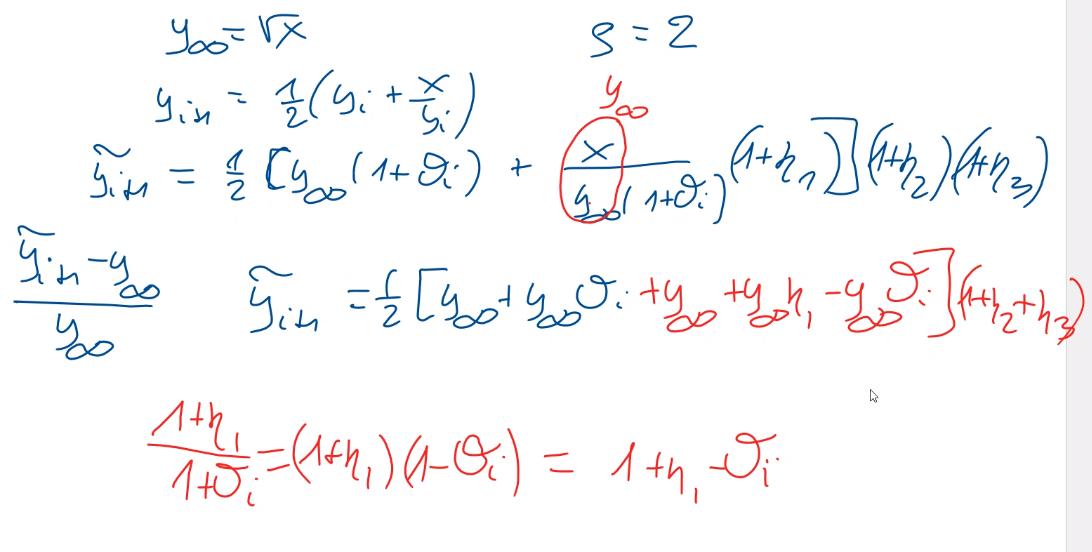 y∞ = √x
ρ = 2
y∞
y_{i+1} = 1/2 (y_i + x/y_i)
ỹ_{i+1} = 1/2 [y∞ (1+ϑ_i) + x/(y∞ (1+ϑ_i)) (1+η_1)] (1+η_2)(1+η_3)
(ỹ_{i+1} - y∞)/y∞
ỹ_{i+1} = 1/2 [y∞ + y∞ϑ_i + y∞ + y∞η_1 - y∞ϑ_i] (1+η_2+η_3)
(1+η_1)/(1+ϑ_i) = (1+η_1)(1-ϑ_i) = 1+η_1-ϑ_i